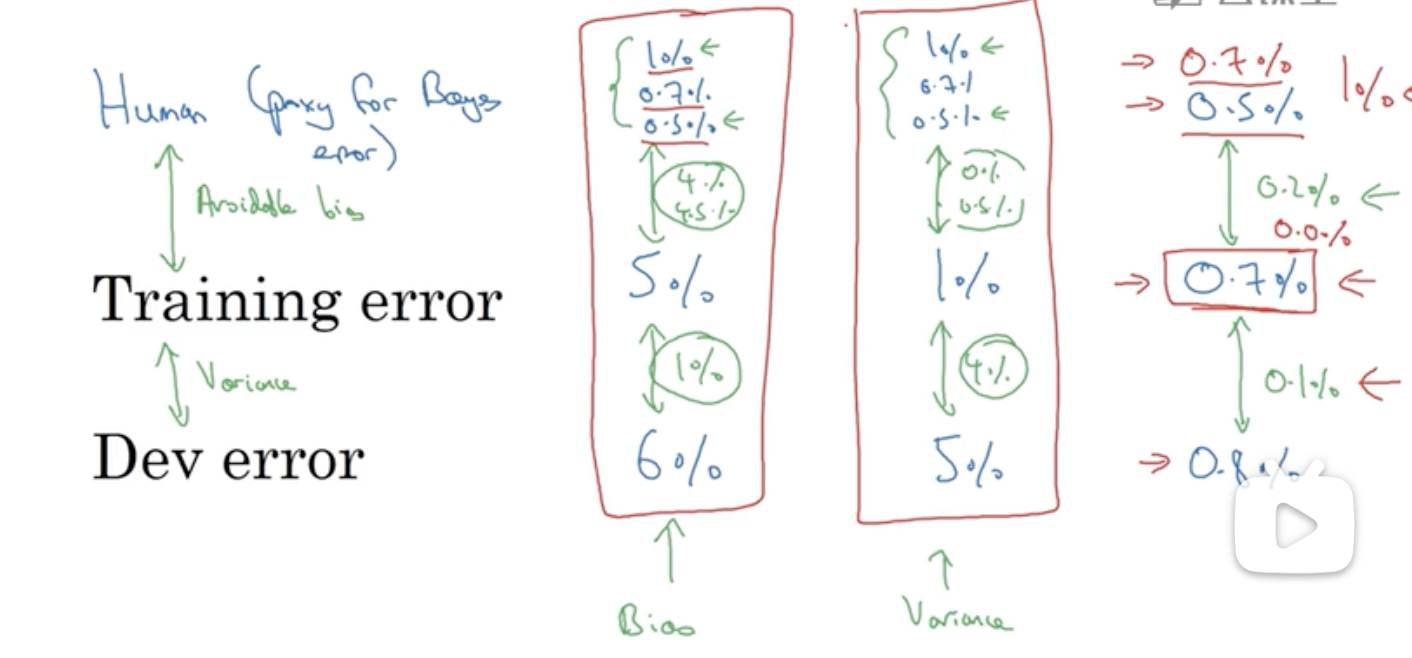 Human (proxy for Bayes
error)
Avoidable bias
Training error
Variance
Dev error
1%
0.7%
0.5%
4%
4.5%
5%
1%
6%
Bias
1%
0.7%
0.5%
0%
0.5%
1%
4%
5%
Variance
0.7%
1%
0.5%
0.2%
0.0%
0.7%
0.1%
0.8%